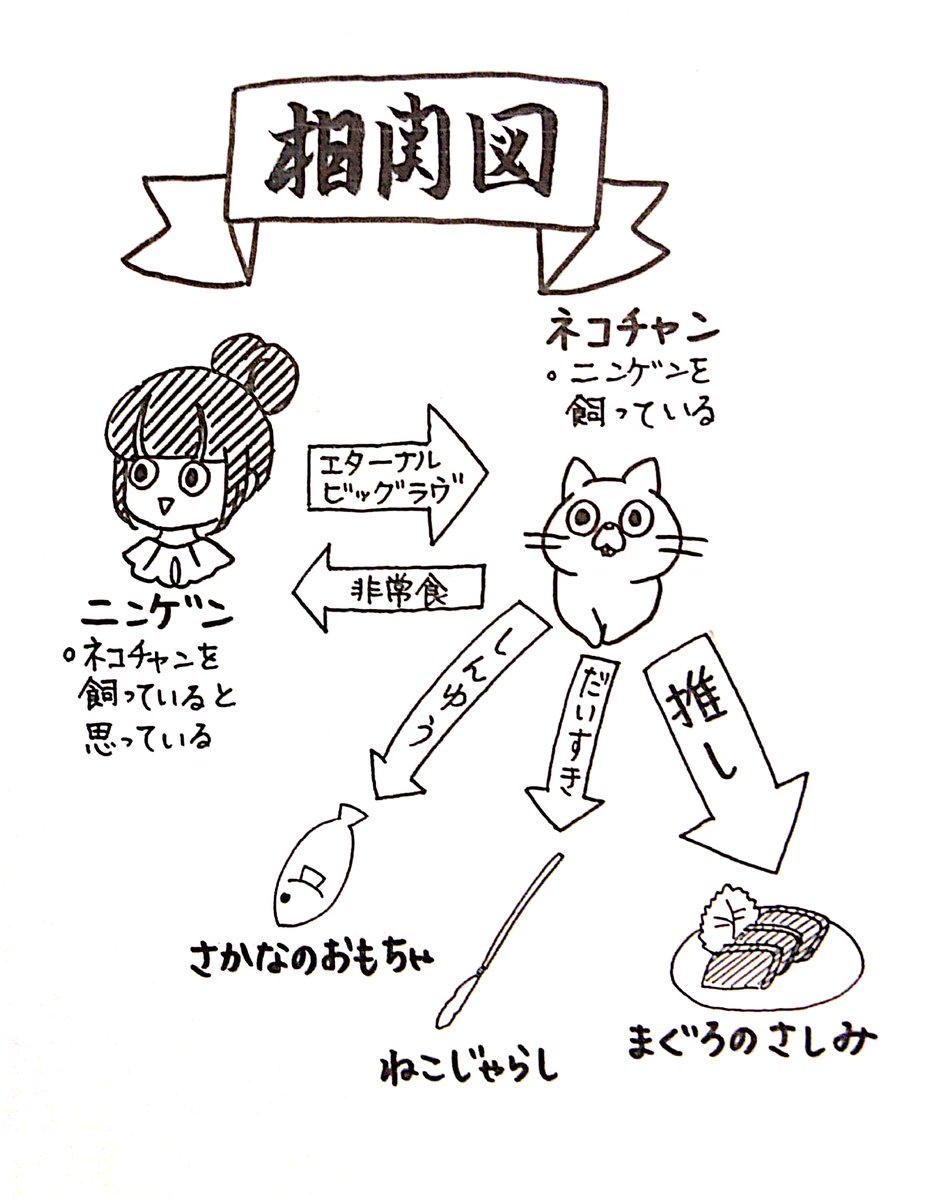 相関図
ネコチャン
。ニンゲンを
飼っている
エターナル
ビッグラヴ
非常食
ニンゲン
。ネコチャンを
飼っていると
思っている
しんゆう
だいすき
推し
さかなのおもちゃ
ねこじゃらし
まぐろのさしみ